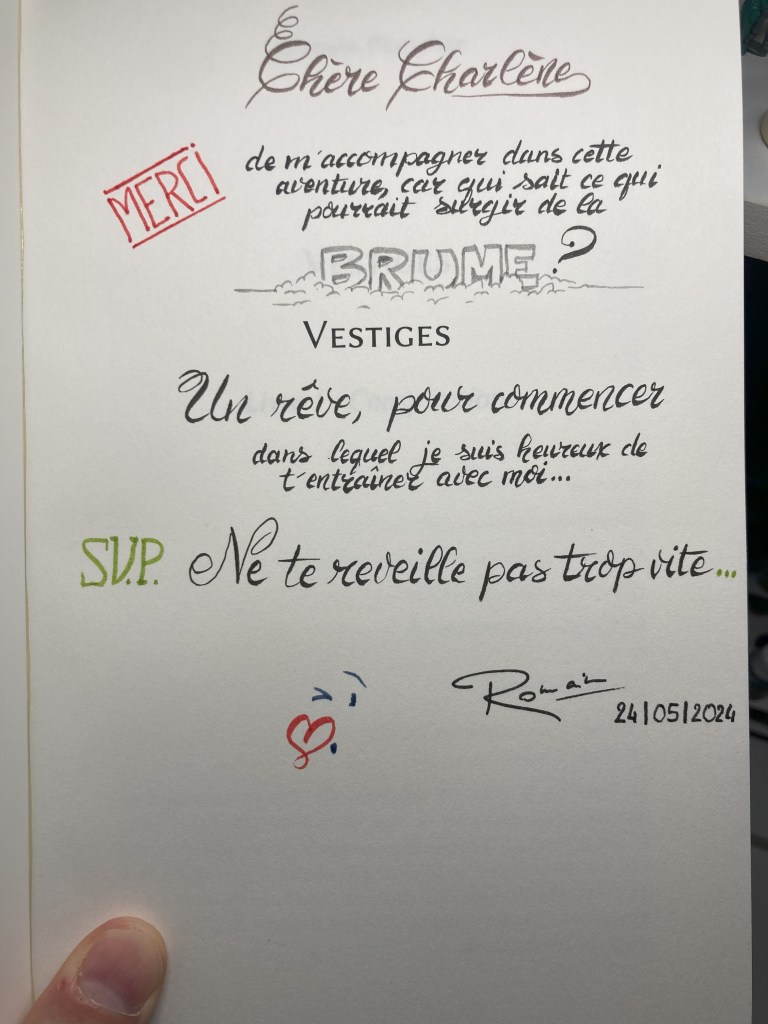 Chère Charlène
MERCI de m'accompagner dans cette
aventure, car qui sait ce qui
pourrait surgir de la
BRUME ?
VESTIGES
Un rêve, pour commencer
dans lequel je suis heureux de
t'entraîner avec moi...
S.V.P. Ne te reveille pas trop vite...
Romain
24/05/2024